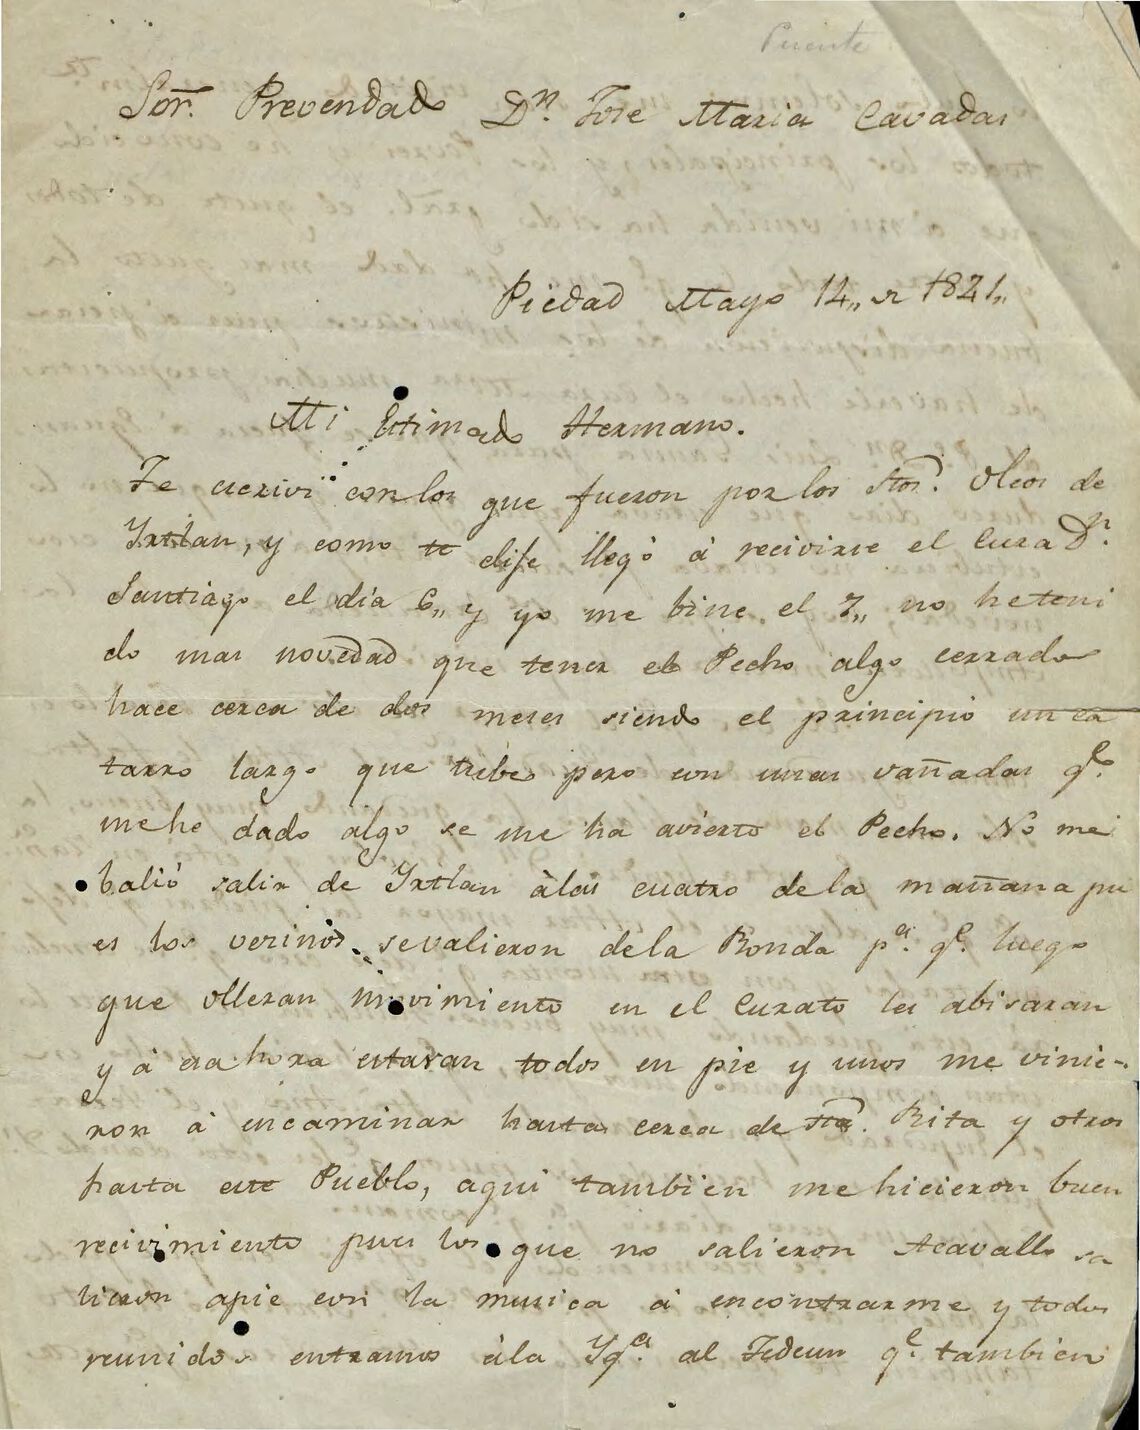 Puente
Sor. Prevendado Dn. Jose Maria Cavadas
Piedad Mayo 14,, de 1821,,
Mi Estimado Hermano.
Te escrivi con los que fueron por los Stos. Oleos de
Yxtlan, y como te dije llegó á recivirse el Cura Dn.
Santiago el día 6,, y yo me bine el 7,, no he teni
do mas novedad que tener el Pecho algo cerrado
hace cerca de dos meses siendo el principio un ca
tarro largo que tube pero con unas vañadas qe.
me he dado algo se me ha avierto el Pecho. No me
balió salir de Yxtlan àlas cuatro de la mañana pu
es los vecinos se valieron dela Ronda pa. qe. luego
que olleran movimiento en el Curato les abisaran
y á esa hora estavan todos en pie y unos me vinie-
ron á encaminar hasta cerca de Sta. Rita y otros
hasta este Pueblo, aqui tambien me hicieron buen
recivimiento pues los que no salieron Acavallo sa
lieron apie con la musica á encontrarme y todos
reunidos entramos àla Yga. al Tedeun qe. tambien